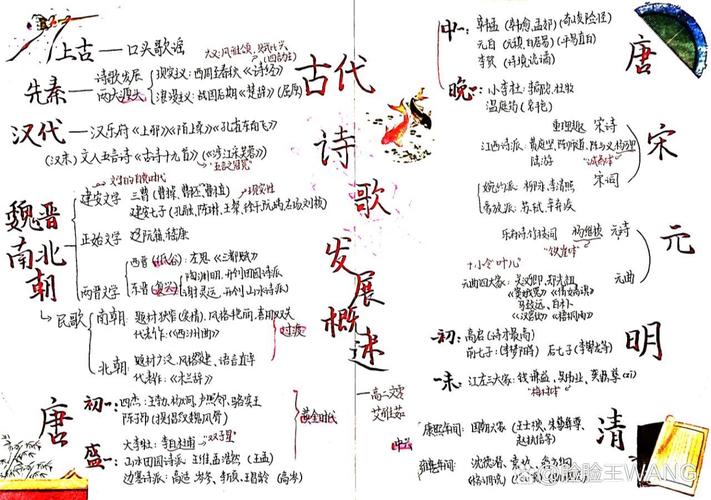 古代诗歌发展概述
上古—口头歌谣
先秦—诗歌发展两大源头
现实主义：西周至春秋《诗经》
浪漫主义：战国后期《楚辞》（屈原）
汉代—汉乐府《上邪》《陌上桑》《孔雀东南飞》
（汉末）文人五言诗《古诗十九首》（《涉江采芙蓉》）
魏晋南北朝
建安文学
三曹（曹操、曹丕、曹植）
建安七子（孔融、陈琳、王粲、徐干、阮瑀、应玚、刘桢）
正始文学
阮籍、嵇康
两晋文学
西晋
左思《三都赋》
东晋
陶渊明，开创田园诗派
谢灵运，开创山水诗派
民歌
南朝：
代表作：《西洲曲》
过渡
北朝：题材广泛、风格
语言直率
代表作：《木兰辞》
唐
初—四杰：王勃、杨炯、卢照邻、骆宾王
陈子昂（提倡汉魏风骨）
盛—大李杜：李白、杜甫 "双子星"
山水田园诗派：王维、孟浩然（王孟）
边塞诗派：高适、岑参、李颀、王昌龄（高岑）
黄金时代
唐
中—韩孟（韩愈、孟郊）（奇崛险怪）
元白（元稹、白居易）（平易直白）
李贺
晚—小李杜：李商隐、杜牧
温庭筠
宋
宋诗
江西诗派：黄庭坚、陈师道、陈与义、杨万里
陆游
"诚斋体"
宋词
婉约派：柳永、李清照
豪放派：苏轼、辛弃疾
元
元诗
杨维桢
"铁崖体"
元曲
元曲四大家：关汉卿、郑光祖
《窦娥冤》《倩女离魂》
马致远、白朴
《汉宫秋》《梧桐雨》
明
初：高启（诗才最高）
前七子：（李梦阳等） 后七子（李攀龙等）
末—江左三大家：钱谦益、吴伟业、龚鼎孳
"梅村体"
清
康熙年间：国朝六家（王士禛、朱彝尊、赵执信等）
雍乾年间：沈德潜、袁枚
高二文学
@脸脸王WANG